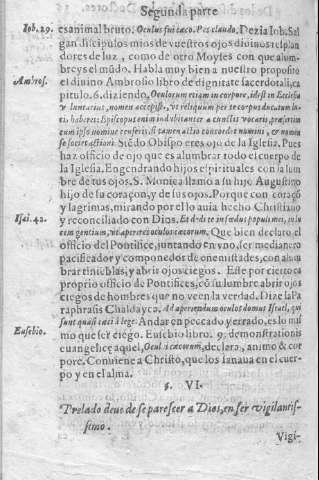 Segunda parte
Iob. 29. es animal bruto. Oculus fui cæco. Pes claudo. Dezia Iob. Sal
gan discipulos mios de vuestros ojos diuinos resplan
dores de luz, como de otro Moyses con que alum
breys el mũdo. Habla muy bien a nuestro proposito
Ambros. el diuino Ambrosio libro de dignitate sacerdotali, ca
pitulo. 6. diziendo, Oculorum etiam in corpore, id est in Ecclesia
vt reliquum per te corpus ducatum
habere: Episcopum enim indubitanter a cunctis vocari, præsertim
cum ipso nomine censeris, si tamen actio concordet nomini, & nomen
se societ actioni. Si ẽdo Obispo eres ojo de la Iglesia. Pues
haz officio de ojo que es alumbrar todo el cuerpo de
la Iglesia. Engendrando hijos espirituales con la lum
bre de tus ojos. S. Monica llamo a su hijo Augustino
hijo de su coraçon, y de sus ojos. Porque con coraçõ
y lagrimas, mirando por el lo auia hecho Christiano
Isai. 42. y reconciliado con Dios. Et dedi te in fœdus populi mei, in lu
cem gentium, vt aperires oculos cæcorum. Que bien declaro el
officio del Pontifice, juntando en vno, ser medianero
pacificador y componedor de enemistades, con alum
brar tinieblas, y abrir ojos ciegos. Este por cierto es
proprio officio de Pontifices, cõ su lumbre abrir ojos
ciegos de hombres que no veen la verdad. Dize la Pa
raphrasis Chaldayca. Ad aperiendum oculos domus Israel, qui
sunt quasi cæci à lege. Andar en peccado y errado, es lo mis
Eusebio. mo que ser ciego. Eusebio libro. 9. demonstrationis
euangelicæ aquel, Oculi cæcorum, declara, animo & cor
pore. Conuiene a Christo, que los sanaua en el cuer-
po y en el alma.
§. VI.
Prelado deue de se parescer a Dios, en ser vigilantis-
simo.
Vigi-